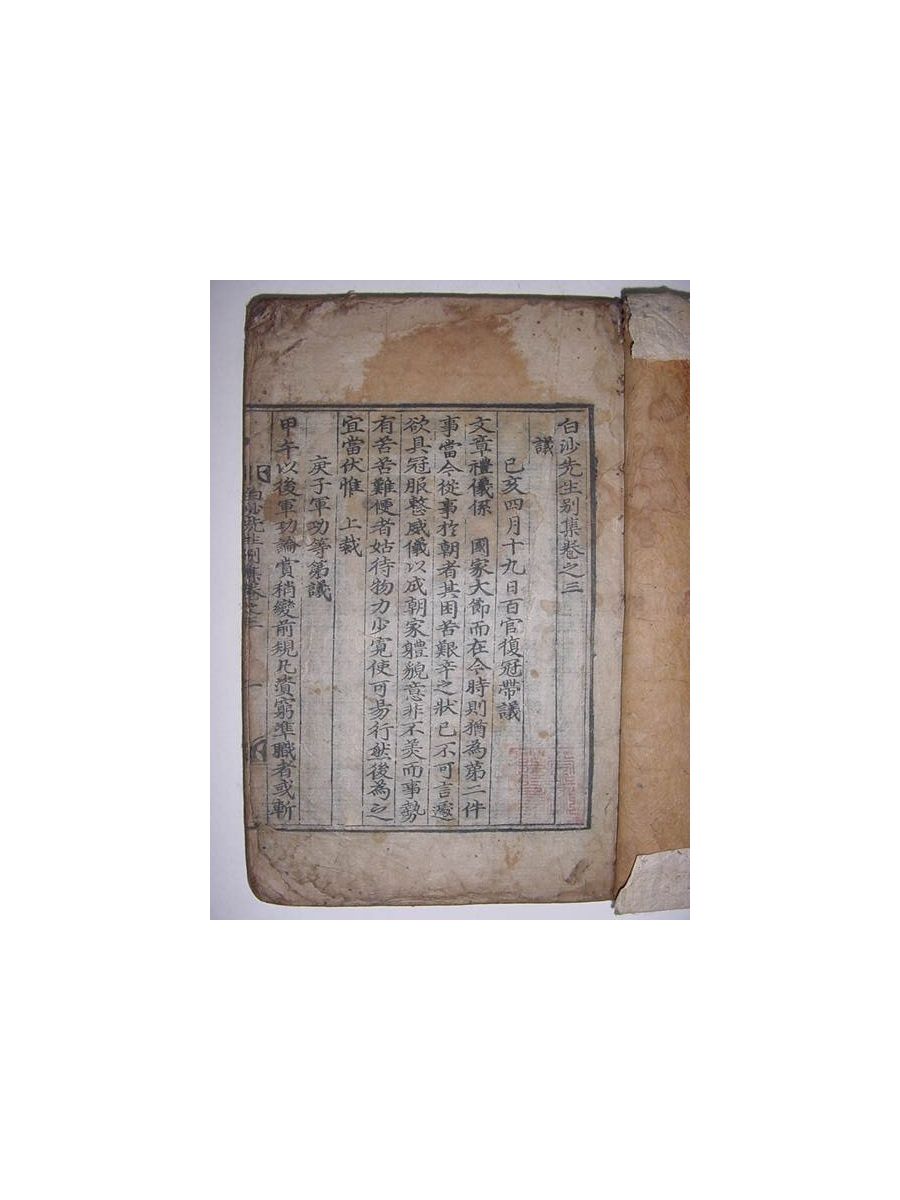 白沙先生别集卷之三
議
己亥四月十九日百官復冠帶議
文章禮儀係 國家大節而在今時則猶為第二件
事當今從事扵朝者其困苦艱辛之狀已不可言遽
欲具冠服整威儀以成朝家軆貌意非不美而事勢
有苦苦難便者姑待物力少寬使可易行然後為之
宜當伏惟 上裁
庚子軍功等第議
甲午以後軍功論賞稍變前規凡濱窮準職者或斬
白沙先生别集卷之三 一